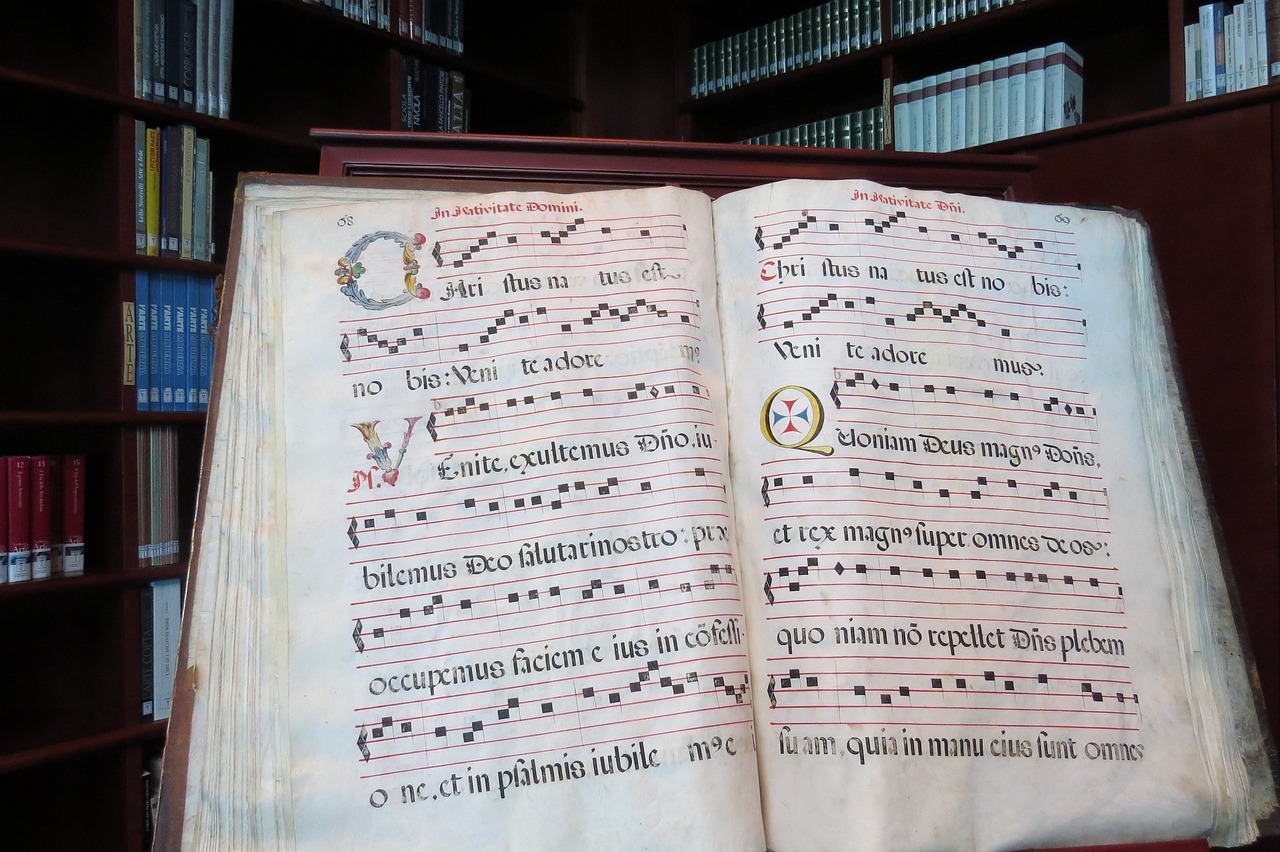 68
In Nativitate Domini.
CHri stus na tus est
no bis: Veni te adore m9
Ps. VEnite, exultemus Dño, iu-
bilemus Deo salutari nostro: præ
occupemus faciem e ius in cõfessi-
o ne, et in psalmis iubile m9 e
69
In Nativitate Dñi.
Chri stus na tus est no bis:
Veni te adore mus.
Quoniam Deus magn9 Dom̃s,
et rex magn9 super omnes deos:
quo niam nõ repellet Dñs plebem
su am, quia in manu eius sunt omnes
ARTE
L'ARTE
L'ARTE
L'ARTE
L'ARTE
L'ARTE
12
13
15